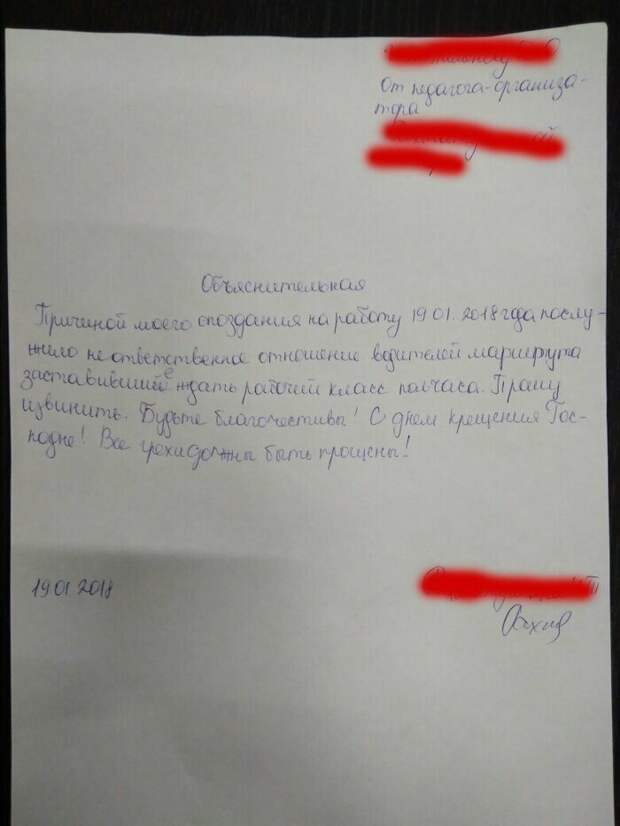 От педагога-организа-
тора
Объяснительная
Причиной моего опоздания на работу 19.01.2018 года послу-
жило не ответственное отношение водителей маршрута
заставившие ждать рабочий класс полчаса. Прашу
извинить. Будьте благочестивы! С днем крещения Гос-
подне! Все грехи должны быть прощены!
19.01.2018